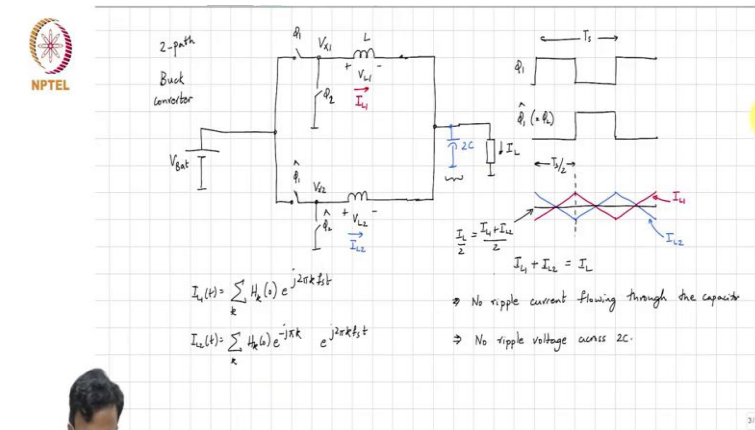 NPTEL
2-path
Buck
converter
VBat
Φ1
Vx1
L
+ VL1 -
IL1
Φ2
Φ̂1
Vx2
+ VL2 -
IL2
Φ̂2
2C
IL
Ts
Φ1
Φ̂1 (= Φ2)
Ts/2
IL1
IL2
IL/2 = (IL1 + IL2)/2
IL1 + IL2 = IL
IL1(t) = ∑k Hk(0) e^{j2πkfst}
IL2(t) = ∑k Hk(0) e^{-jπk} e^{j2πkfst}
⇒ No ripple current flowing through the capacitor
⇒ No ripple voltage across 2C.